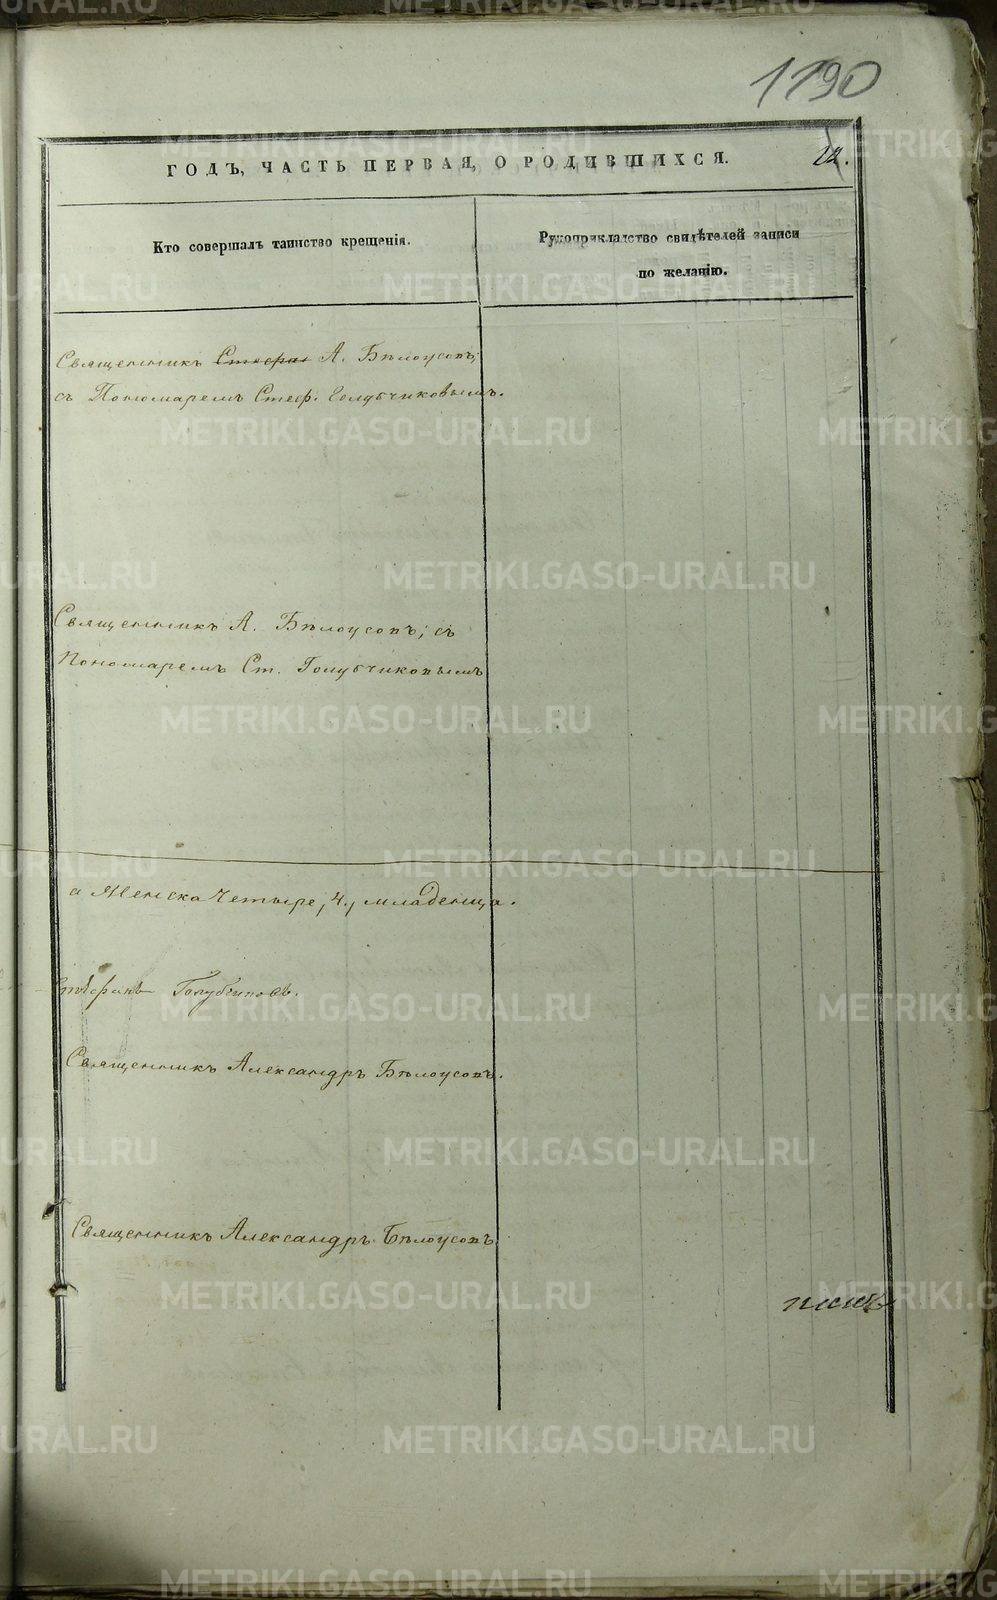 1190
ГОДЪ, ЧАСТЬ ПЕРВАЯ, О РОДИВШИХСЯ. 22.
Кто совершалъ таинство крещенія.
Рукоприкладство свидѣтелей записи
по желанію.
Священникъ Стефан А. Бѣлоусовъ;
съ Пономаремъ Стеф. Голубчиковымъ.
Священникъ А. Бѣлоусовъ; съ
Пономаремъ Ст. Голубчиковымъ
а Женска Четыре, 4, младенца.
Стефанъ Голубчиковъ.
Священникъ Александръ Бѣлоусовъ.
Священникъ Александръ Бѣлоусовъ
METRIKI.GASO-URAL.RU